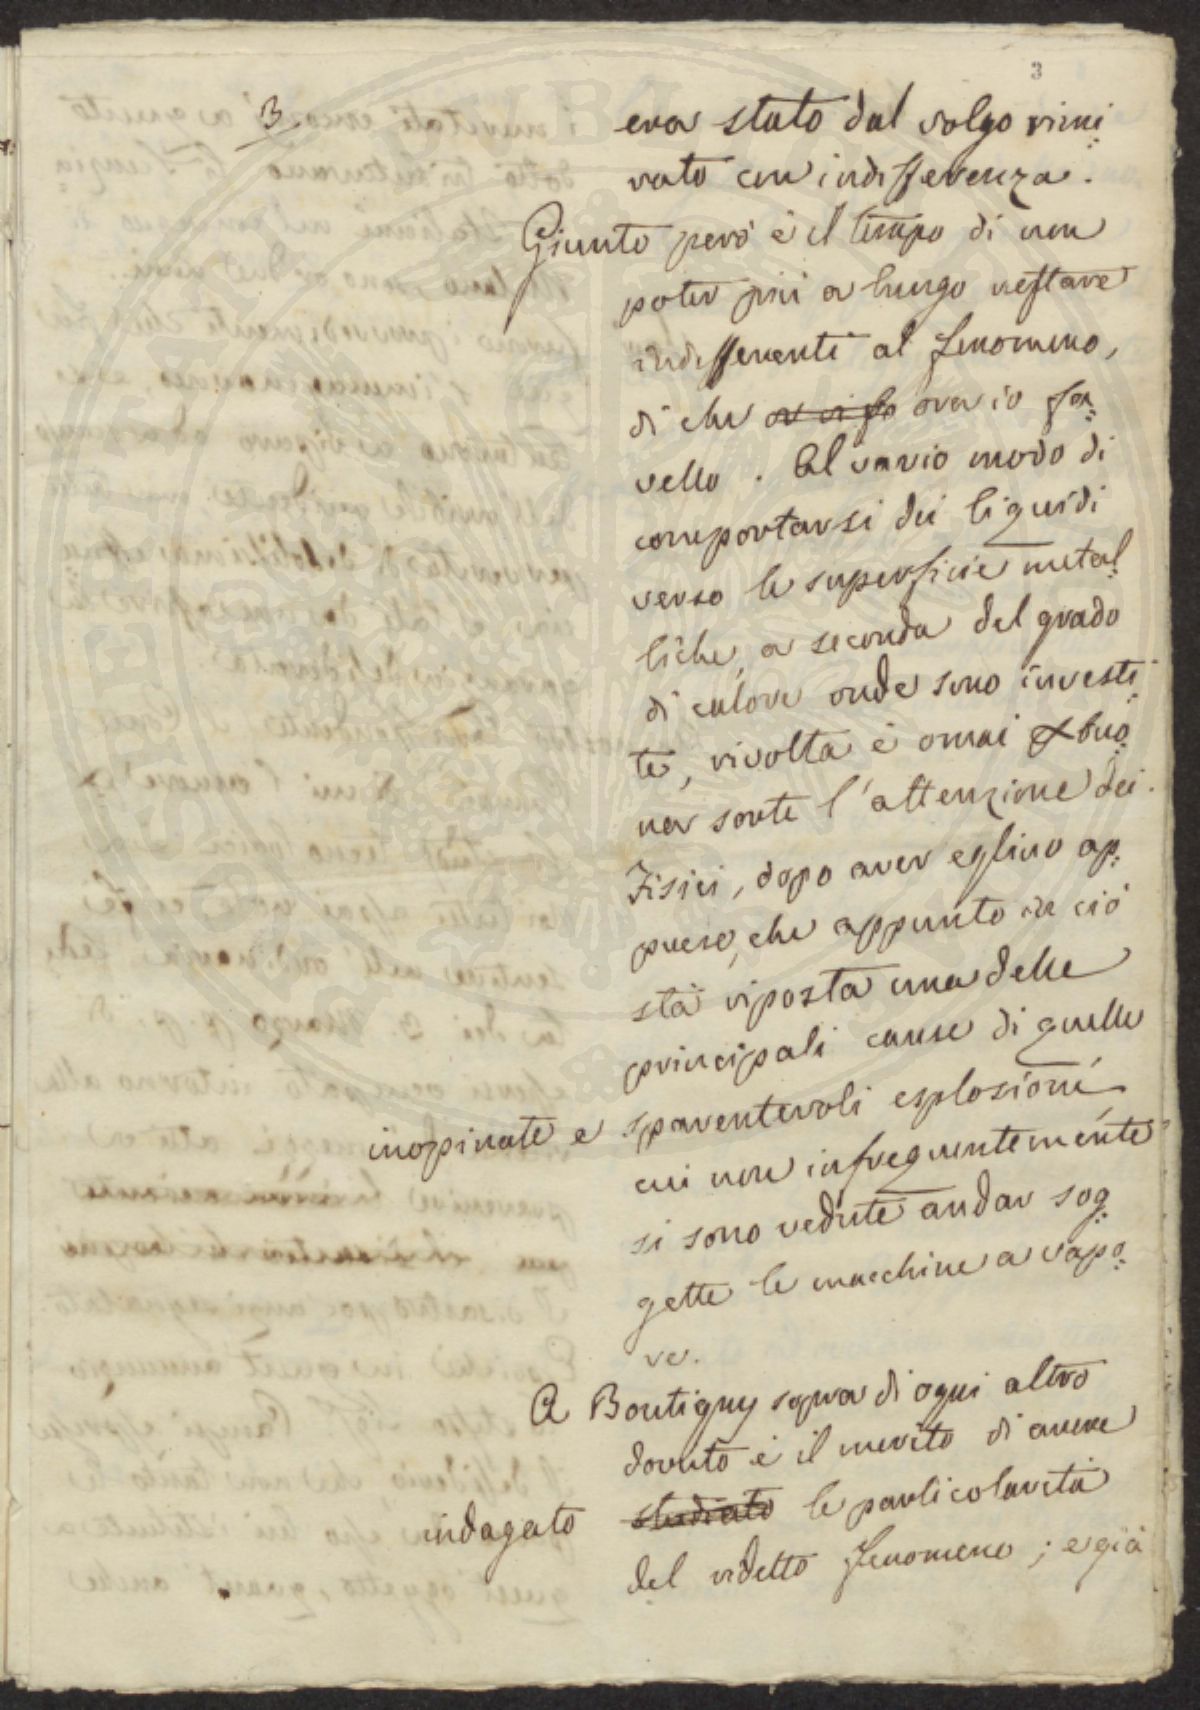 3
3
era stato dal volgo rimi=
rato con indifferenza.
Giunto però è il tempo di non
poter più a lungo restare
indifferenti al fenomeno,
di che or vi fo ora io fa=
vello. Al vario modo di
comportarsi dei liquidi
verso le superficie metal=
liche, a seconda del grado
di calore onde sono investi=
te, rivolta è omai buo=
na sorte l'attenzione dei
Fisici, dopo aver eglino ap=
preso, che appunto in ciò
stà riposta una delle
principali cause di quelle
inopinate e spaventevoli esplosioni
cui non infrequentemente
si sono vedute andar sog=
gette le macchine a vapo=
re.
A Boutigny sopra di ogni altro
dovuto è il merito di avere
indagato studiato le particolarità
del ridetto fenomeno; e già